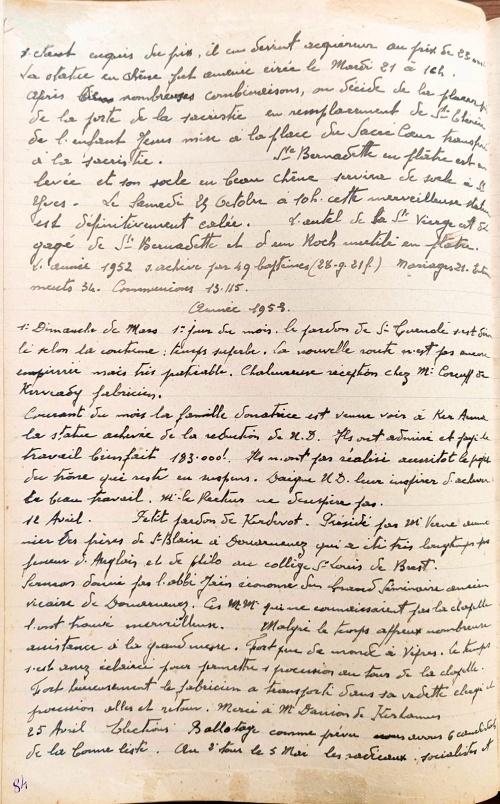 s'étant enquis du prix, il en devint acquéreur au prix de 22
La statue en chêne fut amenée cirée le Mardi 21 à 16h.
Après bien nombreuses combinaisons, on décide de la placer
de la porte de la sacristie en remplacement de Ste
de l'enfant Jésus mise à la place du Sacré Cœur transféré
à la sacristie. Ste Bernadette en plâtre est en
levée et son socle en beau chêne servira de socle à St
Yves. Le Samedi 25 Octobre à 10h. cette merveilleuse statue
est définitivement calée. L'autel de la Ste Vierge est dé
gagé de Ste Bernadette et d'un Roch mutilé en plâtre.
L'année 1952 s'achève par 49 baptêmes (28.g. 21 f.) Mariages 21. Enter
ments 34. Communions 13.115.
Année 1953.
1er Dimanche de Mars 1er jour du mois. le pardon de St Guénolé s'est dérou
lé selon la coutume : temps superbe. La nouvelle route n'est pas encore
empierrée mais très praticable. Chaleureuse réception chez Mr
fabricien.
Courant du mois la famille donatrice est venue voir à Ker Anna
la statue achevée de la réduction de N.D. Ils ont admiré et payé le
travail bien fait 183.000f. Ils n'ont pas réalisé aussitôt le projet
du trône qui reste en suspens. Daigne N.D. leur inspirer d'achever
le beau travail. Mr le Recteur ne désespère pas.
12 Avril. Petit pardon de Kerdevot. Présidé par Mr aumô
nier des frères de St Blaise à Douarnenez qui a été très longtemps pro
fesseur d'Anglais et de philo au collège St Louis de Brest.
Sermon donné par l'abbé économe du Grand Séminaire ancien
vicaire de Douarnenez. Ces MM. qui ne connaissaient pas la chapelle
l'ont trouvé merveilleuse. Malgré le temps affreux nombreuse
assistance à la grand messe. Fort peu de monde à Vêpres. le temps
s'est assez éclairci pour permettre la procession autour de la chapelle.
Fort heureusement le fabricien a transporté dans sa vedette clergé et
procession aller et retour. Merci à Mr
25 Avril Elections Ballotage comme prévu nous avons 6 candidats
de la bonne liste. Au 2e tour le 3 Mai les radicaux, socialistes et
84